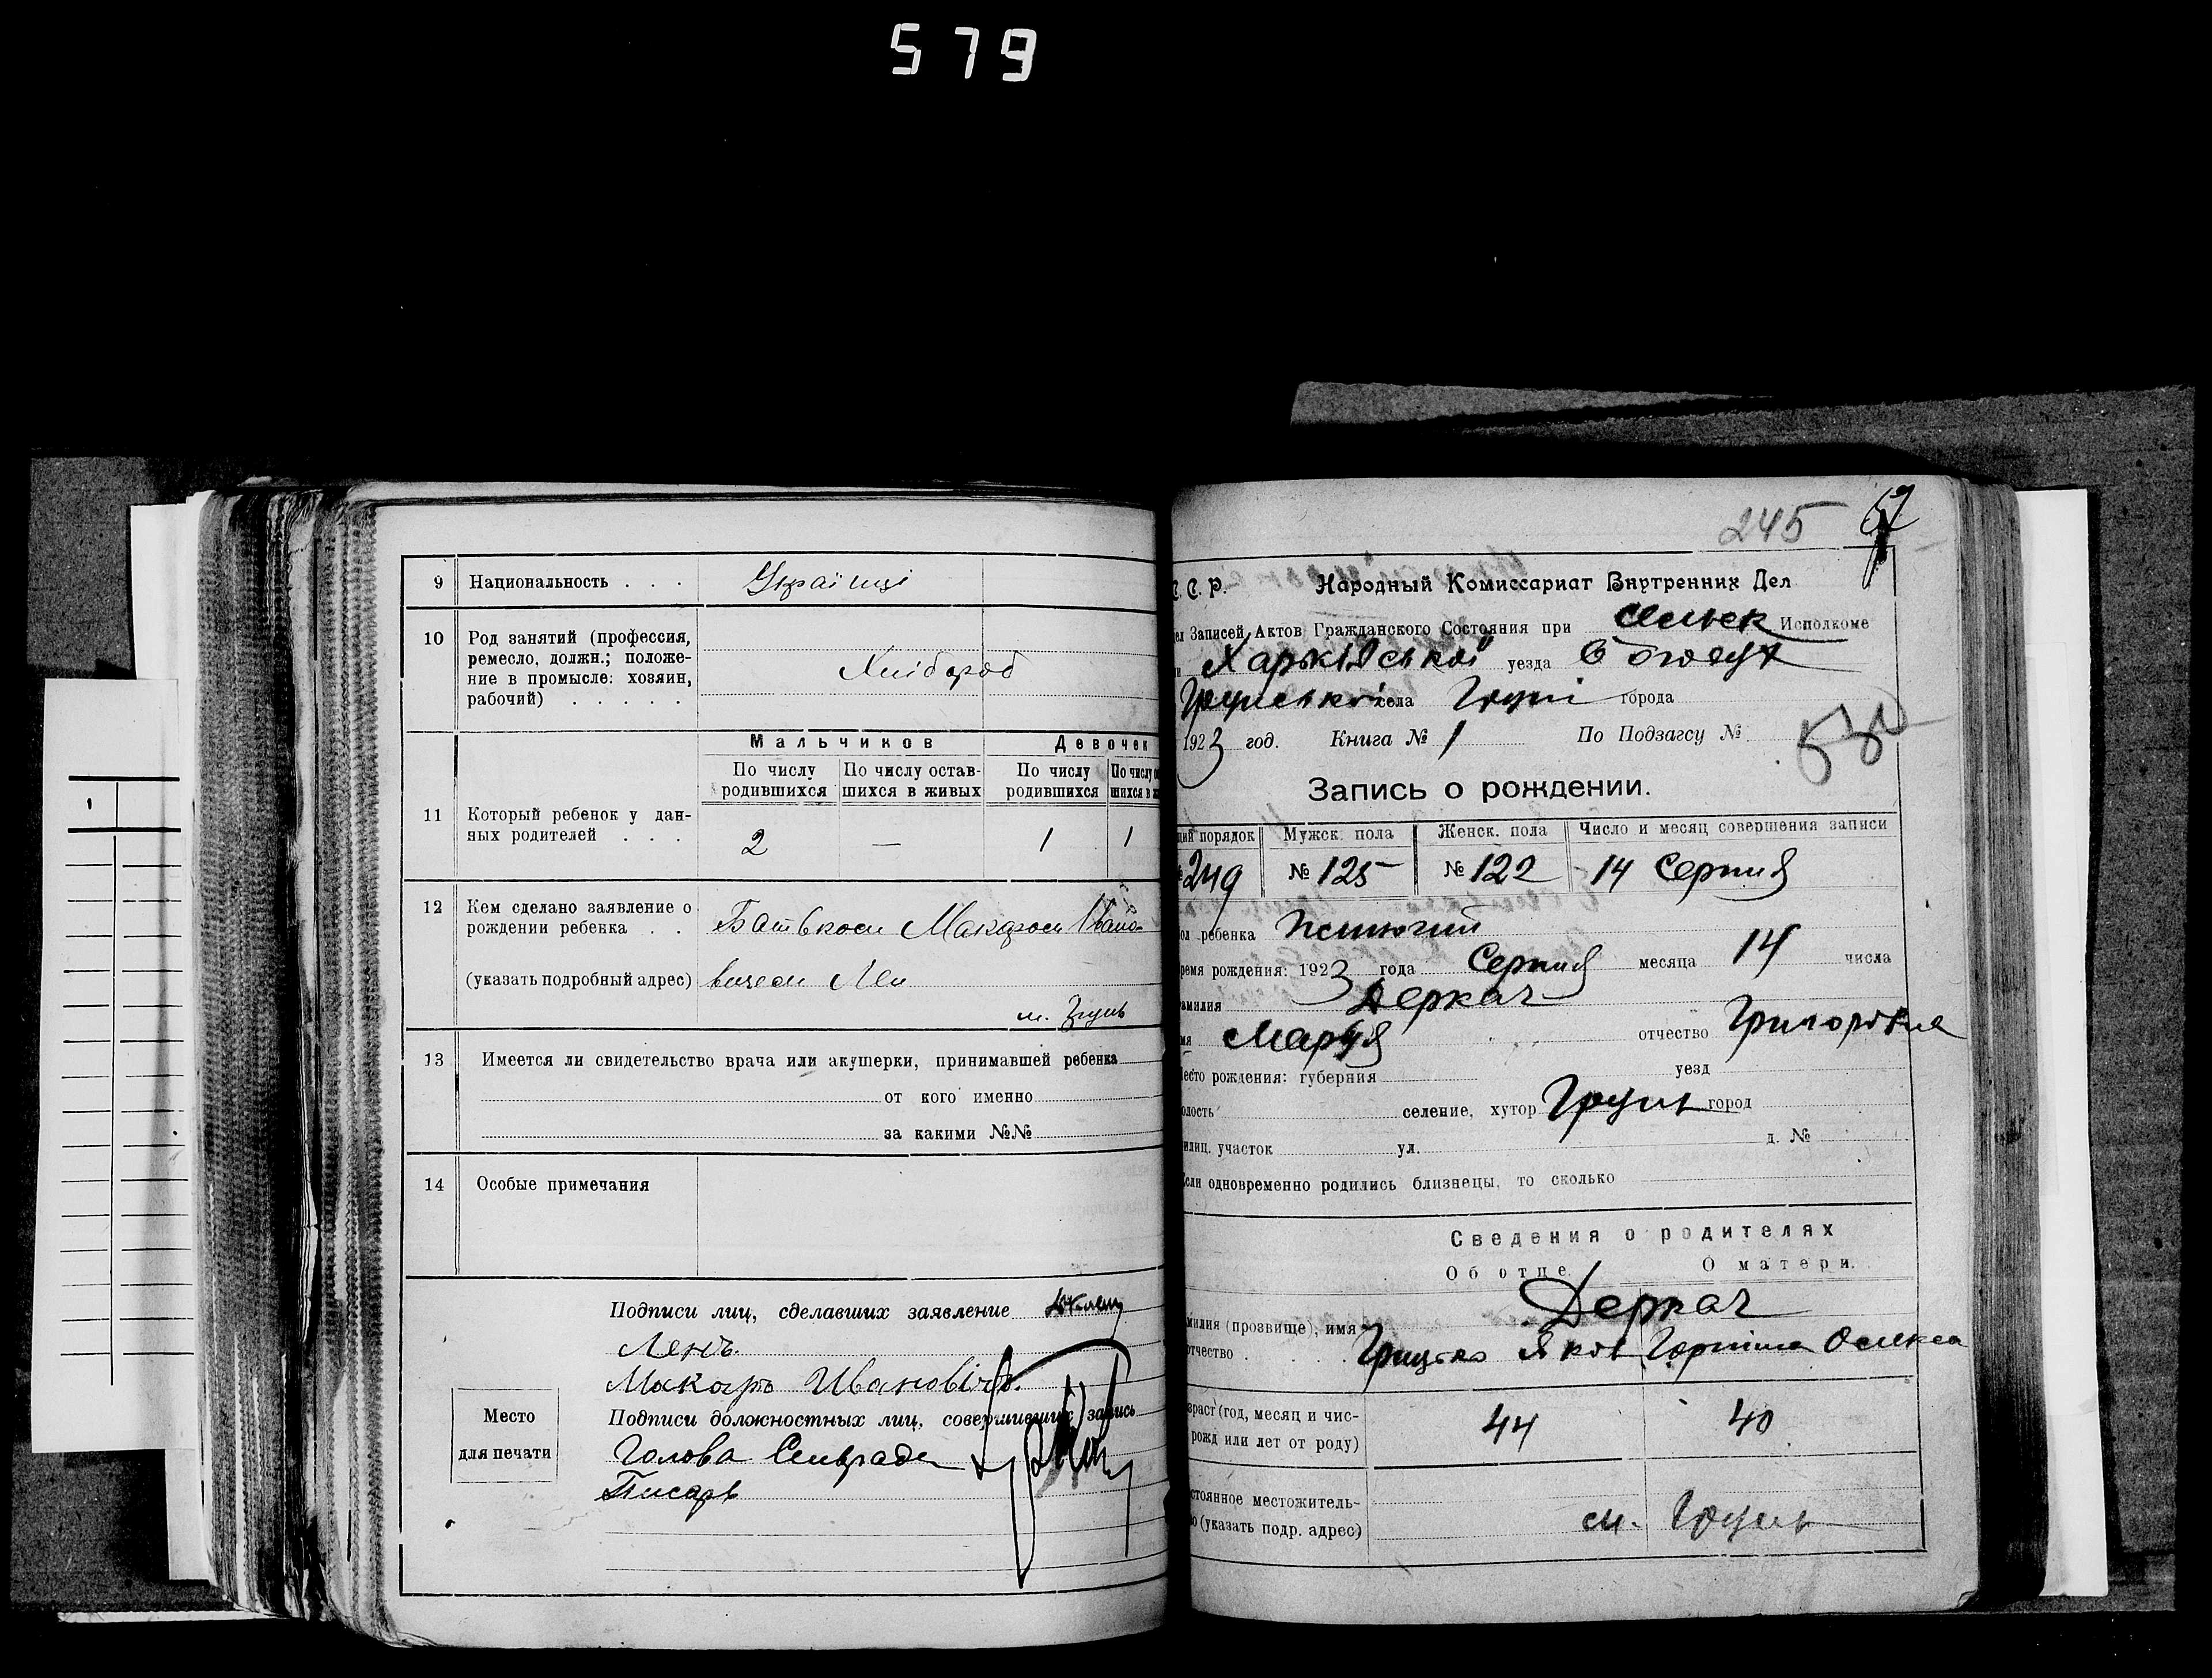 579
9 Национальность . . . Українці
10 Род занятий (профессия,
ремесло, должн.; положе-
ние в промысле: хозяин,
рабочий) . . . . . Хлібороб
Мальчиков Девочек
По числу родившихся По числу остав-шихся в живых По числу родившихся По числу
11 Который ребенок у дан-
ных родителей . . . 2 — 1 1
12 Кем сделано заявление о
рождении ребенка . . Батьком Макаром Івано-
(указать подробный адрес) вичем Лен
м. Грунь
13 Имеется ли свидетельство врача или акушерки, принимавшей ребенка
от кого именно
за какими №№
14 Особые примечания
Подписи лиц, сделавших заявление
Ленъ
Макаръ Ивановічъ.
Место
для печати
Подписи должностных лиц, совершивших запись
Голова Сельради
Писарь
245
С. С. Р. Народный Комиссариат Внутренних Дел
Записей Актов Гражданского Состояния при Исполкоме
Харківської уезда Богодух
Грунської села Груні города
1923 год. Книга № 1 По Подзагсу №
530
Запись о рождении.
порядок Мужск. пола Женск. пола Число и месяц совершения записи
249 № 125 № 122 14 Серпня
ребенка
время рождения: 1923 года Серпня месяца 14 числа
Деркач
Марія отчество Григоровна
место рождения: губерния уезд
селение, хутор Грунь город
участок ул. д. №
если одновременно родились близнецы, то сколько
Сведения о родителях
Об отце О матери.
Деркач
(прозвище), имя
отчество . . . Грицько Яков Горпина
(год, месяц и чис-
рожд или лет от роду) 44 40
местожитель-
(указать подр. адрес) м. Грунь